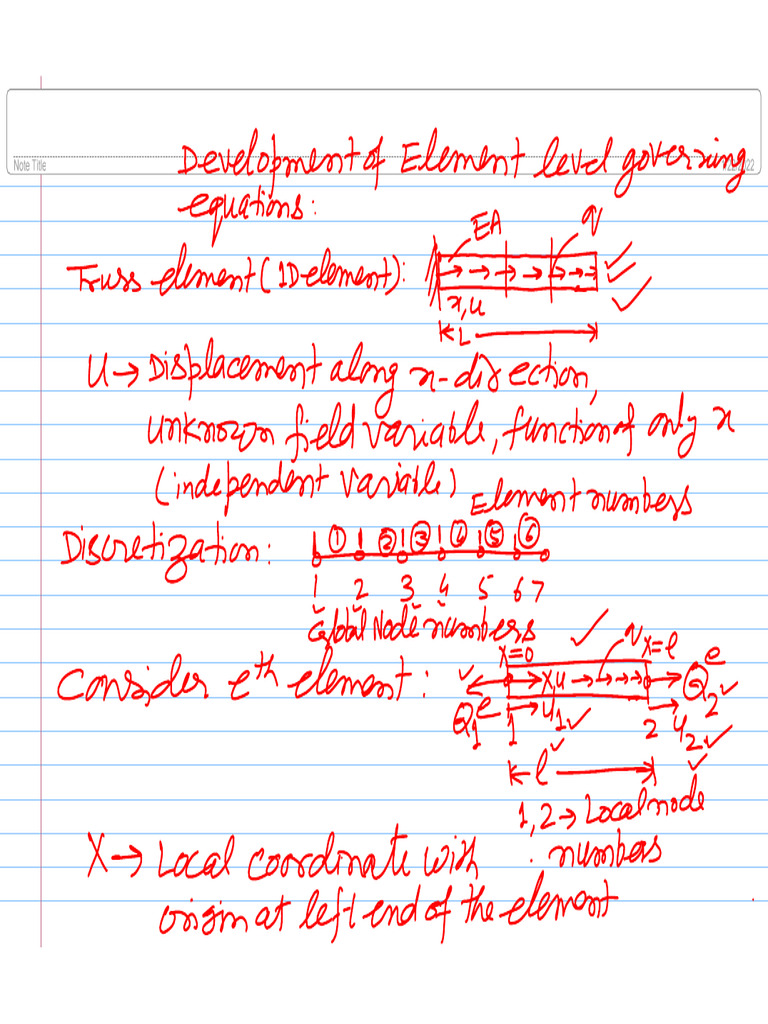 Note Title
Development of Element level governing
equations:
EA
q
Truss element (1D element):
x, u
L
u → Displacement along x-direction,
unknown field variable, function of only x
(independent variable)
Element numbers
Discretization:
1 2 3 4 5 6
1 2 3 4 5 6 7
Global Node numbers
Consider eth element:
X=0
q
X=l
X,u
Q1e
1
u1
2
u2
Q2e
l
1,2 → Local node
numbers
X → Local coordinate with
origin at left end of the element